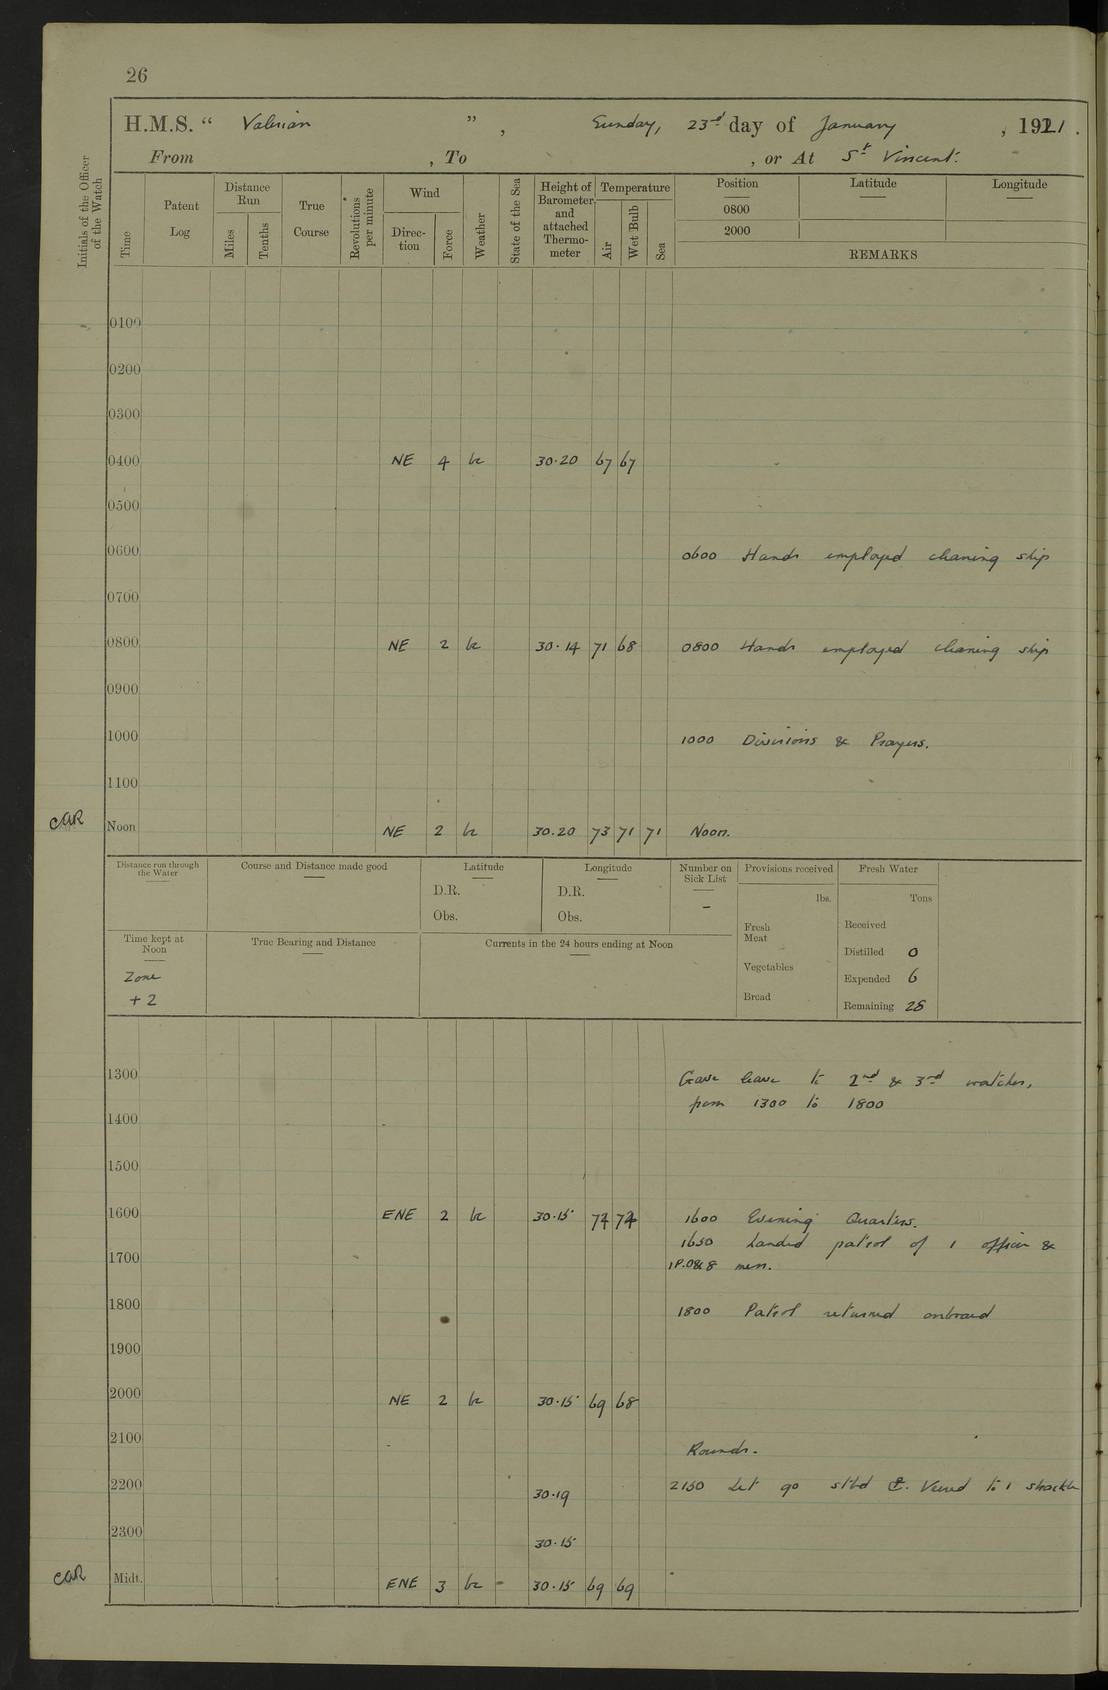 26
H.M.S. “ Valerian ” , Sunday, 23rd day of January , 1921 .
From , To , or At St Vincent.
Initials of the Officer of the Watch
Time
Patent Log
Distance Run
Miles
Tenths
True Course
Revolutions per minute
Wind
Direc-tion
Force
Weather
State of the Sea
Height of Barometer and attached Thermo-meter
Temperature
Air
Wet Bulb
Sea
Position Latitude Longitude
0800
2000
REMARKS
0100
0200
0300
0400 NE 4 bc 30.20 67 67
0500
0600 0600 Hands employed cleaning ship
0700
0800 NE 2 bc 30.14 71 68 0800 Hands employed cleaning ship
0900
1000 1000 Divisions & Prayers.
1100
CAR Noon NE 2 bc 30.20 73 71 71 Noon.
Distance run through the Water
Course and Distance made good
Latitude
D.R.
Obs.
Longitude
D.R.
Obs.
Number on Sick List
–
Provisions received
lbs.
Fresh Meat
Vegetables
Bread
Fresh Water
Tons
Received
Distilled 0
Expended 6
Remaining 28
Time kept at Noon
Zone
+ 2
True Bearing and Distance
Currents in the 24 hours ending at Noon
1300 Gave leave to 2nd & 3rd watches,
from 1300 to 1800
1400
1500
1600 ENE 2 bc 30.15 1600 Evening Quarters.
1630 Landed patrol of 1 officer &
1700 1P.O & 8 men.
1800 1800 Patrol returned onboard
1900
2000 NE 2 bc 30.15 69 68
2100 Rounds.
2200 30.19 2130 Let go stbd Veered to 1 shackle
2300 30.15
CAR Midt. ENE 3 bc 30.15 69 69